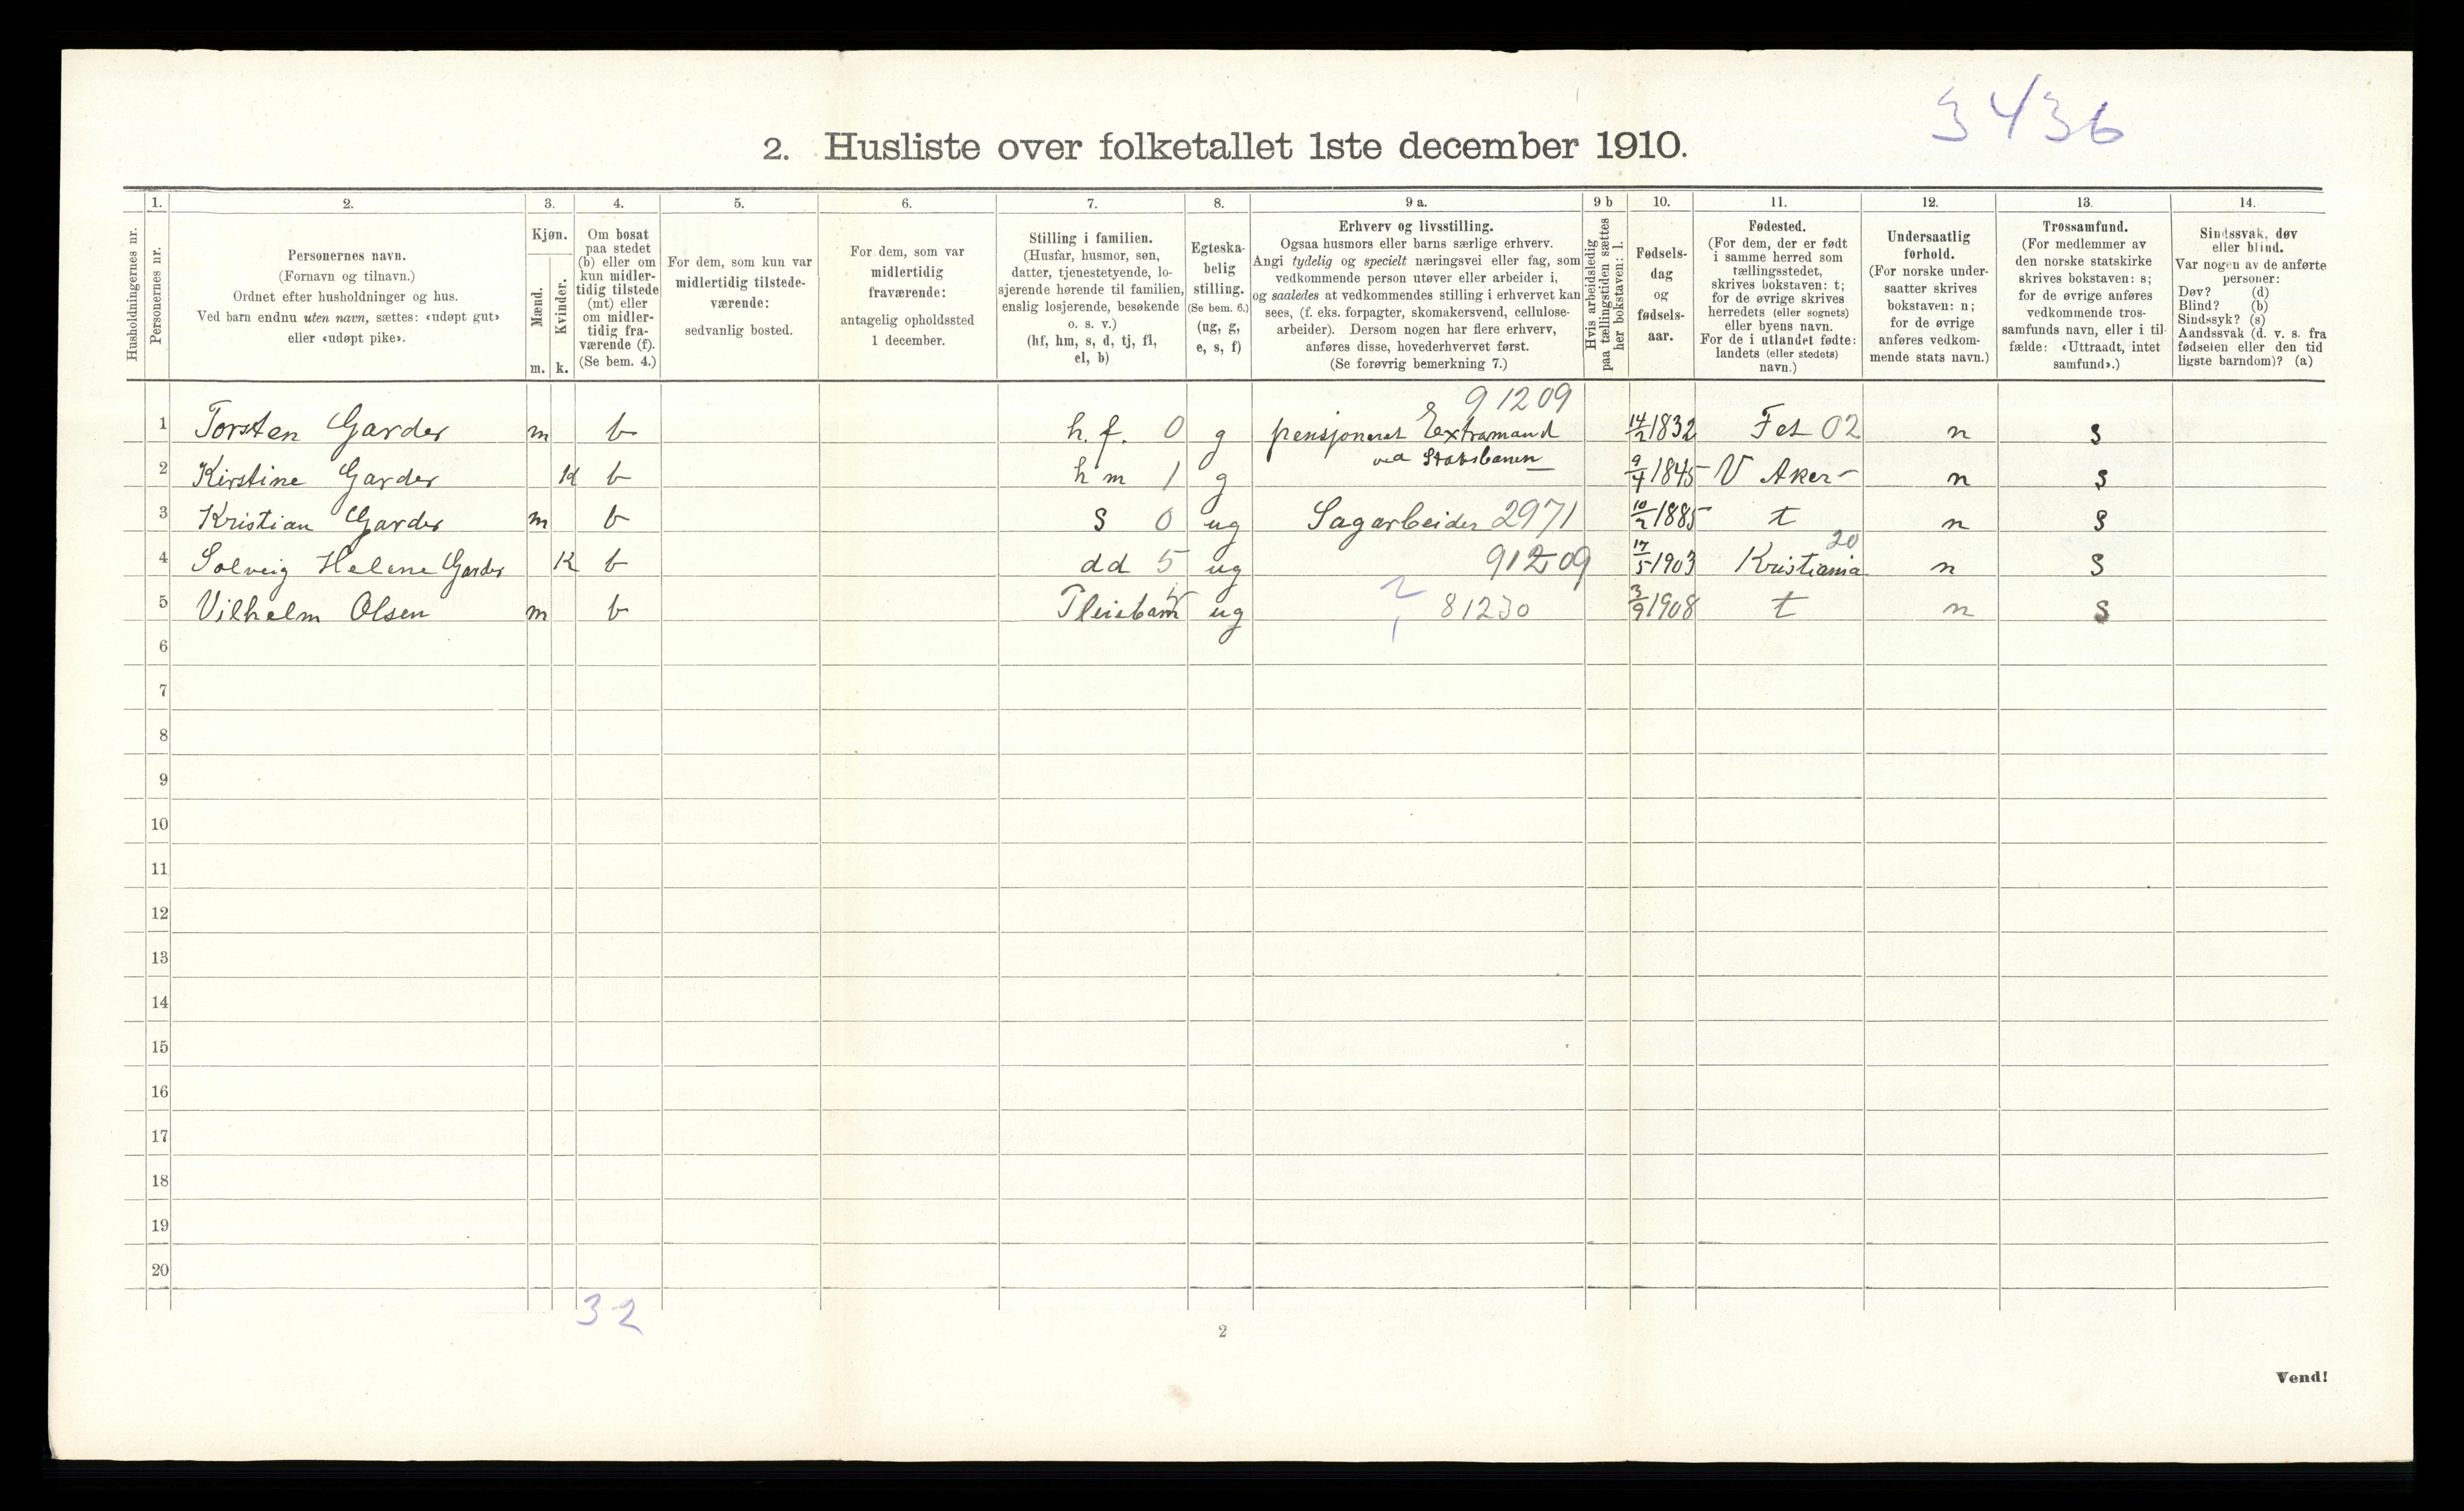 3436
2. Husliste over folketallet 1ste december 1910.
Husholdningernes nr.
1.
Personernes nr.
2.
Personernes navn.
(Fornavn og tilnavn.)
Ordnet efter husholdninger og hus.
Ved barn endnu uten navn, sættes: «udøpt gut»
eller «udøpt pike».
3.
Kjøn.
Mænd.
Kvinder.
m. k.
4.
Om bosat
paa stedet
(b) eller om
kun midler-
tidig tilstede
(mt) eller
om midler-
tidig fra-
værende (f).
(Se bem. 4.)
5.
For dem, som kun var
midlertidig tilstede-
værende:
sedvanlig bosted.
6.
For dem, som var
midlertidig
fraværende:
antagelig opholdssted
1 december.
7.
Stilling i familien.
(Husfar, husmor, søn,
datter, tjenestetyende, lo-
sjerende hørende til familien,
enslig losjerende, besøkende
o. s. v.)
(hf, hm, s, d, tj, fl,
el, b)
8.
Egteska-
belig
stilling.
(Se bem. 6.)
(ug, g,
e, s, f)
9 a.
Erhverv og livsstilling.
Ogsaa husmors eller barns særlige erhverv.
Angi tydelig og specielt næringsvei eller fag, som
vedkommende person utøver eller arbeider i,
og saaledes at vedkommendes stilling i erhvervet kan
sees, (f. eks. forpagter, skomakersvend, cellulose-
arbeider). Dersom nogen har flere erhverv,
anføres disse, hovederhvervet først.
(Se forøvrig bemerkning 7.)
9 b
Hvis arbeidsledig
paa tællingstiden sættes
her bokstaven: l.
10.
Fødsels-
dag
og
fødsels-
aar.
11.
Fødested.
(For dem, der er født
i samme herred som
tællingsstedet,
skrives bokstaven: t;
for de øvrige skrives
herredets (eller sognets)
eller byens navn.
For de i utlandet fødte:
landets (eller stedets)
navn.)
12.
Undersaatlig
forhold.
(For norske under-
saatter skrives
bokstaven: n;
for de øvrige
anføres vedkom-
mende stats navn.)
13.
Trossamfund.
(For medlemmer av
den norske statskirke
skrives bokstaven: s;
for de øvrige anføres
vedkommende tros-
samfunds navn, eller i til-
fælde: «Uttraadt, intet
samfund».)
14.
Sindssvak, døv
eller blind.
Var nogen av de anførte
personer:
Døv? (d)
Blind? (b)
Sindssyk? (s)
Aandssvak (d. v. s. fra
fødselen eller den tid
ligste barndom)? (a)
91209
1 Torsten Garder m b h. f. 0 g pensjoneret Extramand 14/2 1832 Fet 02 n s
ved Statsbanen
2 Kirstine Garder k b h m 1 g 9/4 1845 V Aker n s
3 Kristian Garder m b s 0 ug Sagarbeider 2971 10/2 1885 t n s
4 Solveig Helene Garder k b dd 5 ug 91209 17/5 1903 Kristiania 20 n s
5 Vilhelm Olsen m b Pleiebarn ug 81230 3/9 1908 t n s
6
7
8
9
10
11
12
13
14
15
16
17
18
19
20
32
2
Vend!